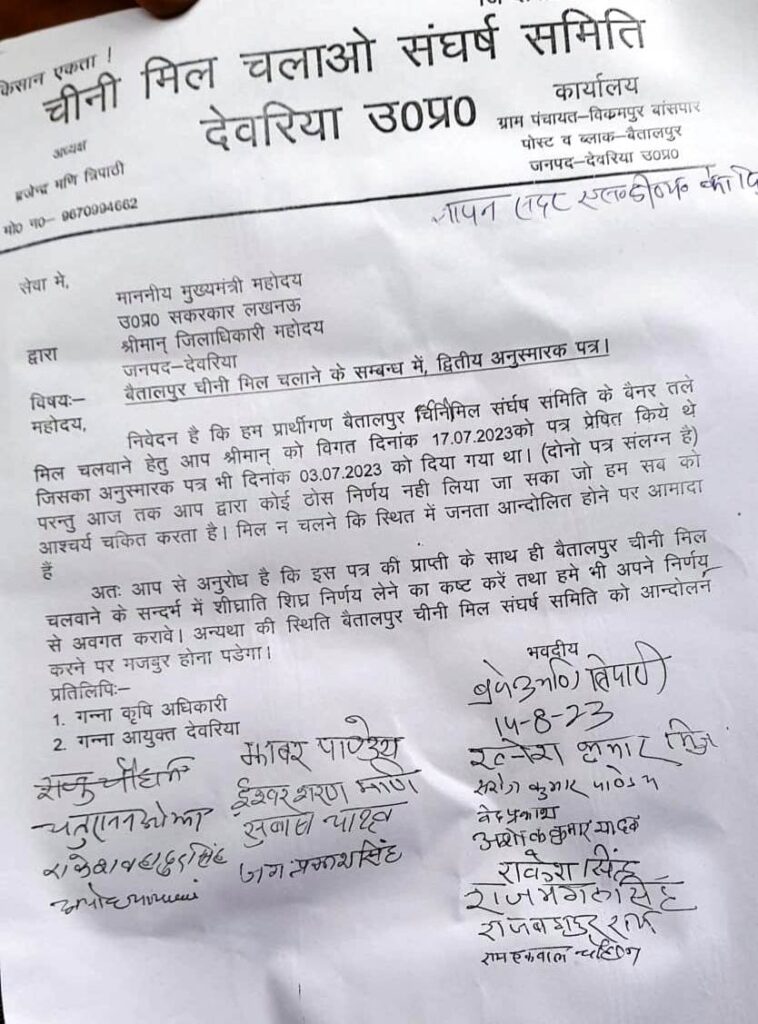 किसान एकता !
चीनी मिल चलाओ संघर्ष समिति
देवरिया उ0प्र0
अध्यक्ष
ब्रजेन्द्र मणि त्रिपाठी
मो0 न0– 9670994662
कार्यालय
ग्राम पंचायत–विक्रमपुर बांसपार
पोस्ट व ब्लाक–बैतालपुर
जनपद–देवरिया उ0प्र0
ज्ञापन
सेवा मे,
माननीय मुख्यमंत्री महोदय
उ0प्र0 सकरकार लखनऊ
द्वारा
श्रीमान् जिलाधिकारी महोदय
जनपद–देवरिया
विषयः–
बैतालपुर चीनी मिल चलाने के सम्बन्ध में, द्वितीय अनुस्मारक पत्र।
महोदय,
निवेदन है कि हम प्रार्थीगण बैतालपुर संर्घष समिति के बैनर तले
मिल चलवाने हेतु आप श्रीमान् को विगत दिनांक 17.07.2023को पत्र प्रेषित किये थे
जिसका अनुस्मारक पत्र भी दिनांक 03.07.2023 को दिया गया था। (दोनो पत्र संलग्न है)
परन्तु आज तक आप द्वारा कोई ठोस निर्णय नही लिया जा सका जो हम सब को
आश्चर्य चकित करता है। मिल न चलने कि स्थित में जनता आन्दोलित होने पर आमादा
हैं
अतः आप से अनुरोध है कि इस पत्र की प्राप्ती के साथ ही बैतालपुर चीनी मिल
चलवाने के सन्दर्भ में शीघ्राति शिघ्र निर्णय लेने का कष्ट करें तथा हमे भी अपने निर्णय
से अवगत करावे। अन्यथा की स्थिति बैतालपुर चीनी मिल संघर्ष समिति को आन्दोलन
करने पर मजबुर होना पडेगा।
भवदीय
प्रतिलिपिः–
1. गन्ना कृषि अधिकारी
2. गन्ना आयुक्त देवरिया
त्रिपाठी
14-8-23
राजु चौहान
पाण्डेय
ईश्वर शरण
सुभाष यादव
सिंह
जय प्रकाश सिंह
कुमार मिश्र
सरोज कुमार पाण्डेय
वेद प्रकाश
अशोक कुमार यादव
राकेश सिंह
राजमंगल सिंह
राजबहादुर